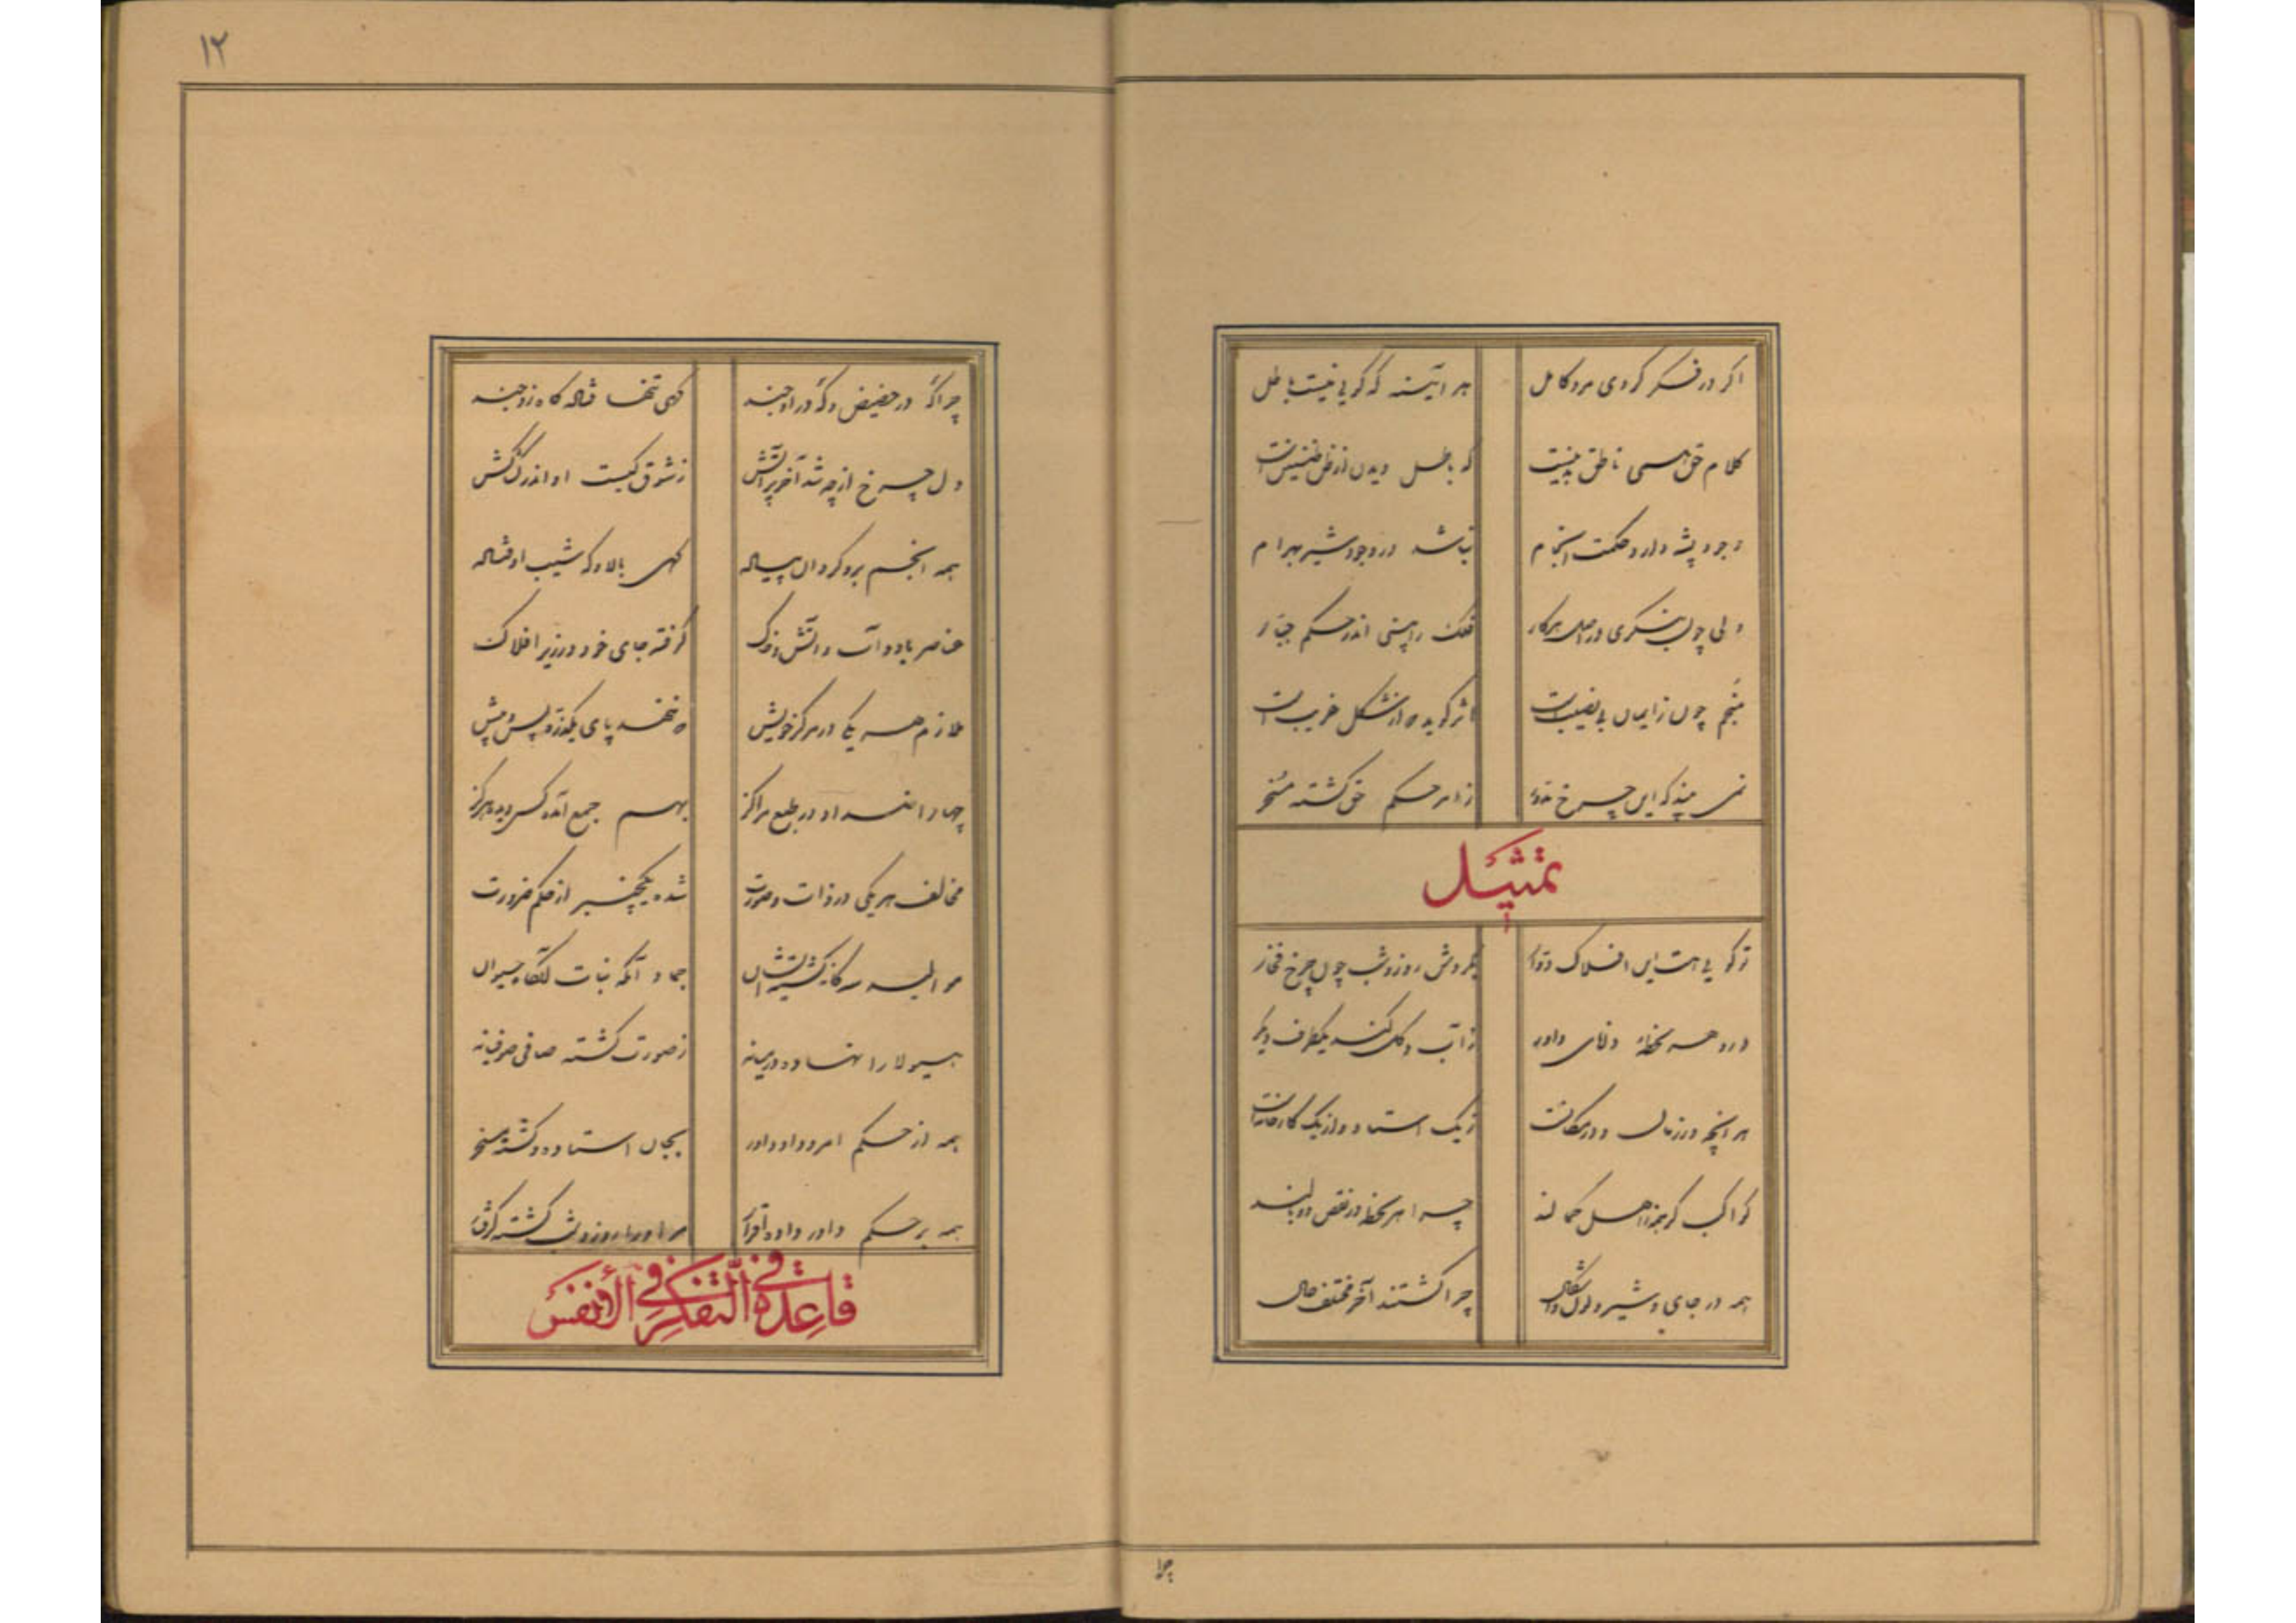 اگر در فکر گردی مرد کامل هر آئینه که گویی نیست باطل
کلام حق همی ناطق بدینست که باطل دیدن از ظن الذین است
وجود پشه دارد حکمت ای خام نباشد در وجود شیر بهرام
ولی چون بنگری در اصل هر کار فلک را بینی اندر حکم جبار
منجم چون ز ایمان بی نصیب است اثر گوید که از شکل غریب است
نمی بیند که این چرخ مدور ز امر حکم حق گشته مسخر
تمثیل
تو گویی هست این افلاک دوار بگردش روز و شب چون چرخ فخار
درو هر لحظه دانای داور ز آب و گل کند یکظرف دیگر
هر آنچه در زمان و در مکانست ز یک استاد و از یک کارخانه است
کواکب گر همه از اهل کمالند چرا هر لحظه در نقص و وبالند
همه در جای و سیر و لون و اشکال چرا گشتند آخر مختلف حال
چرا
۱۲
چرا گه در حضیض و گه در اوجند گهی تنها فتاده گاه زوجند
دل چرخ از چه شد آخر پر آتش ز شوق کیست او اندر کشاکش
همه انجم برو گردان پیاله گهی بالا و گه شیب اوفتاله
عناصر باد و آب و آتش و خاک گرفته جای خود در زیر افلاک
ملازم هر یکی در مرکز خویش که ننهد پای یکذره پس و پیش
چهار اضداد در طبع مراکز بهم جمع آمده کس دیده هرگز
مخالف هر یکی در ذات و صورت شده یکچیز از حکم ضرورت
موالید سه گانه گشته زیشان جماد آنگه نبات آنگاه حیوان
هیولا را نهاده در میانه ز صورت گشته صافی صوفیانه
همه از حکم امر داد داور بجان استاده و گشته مسخر